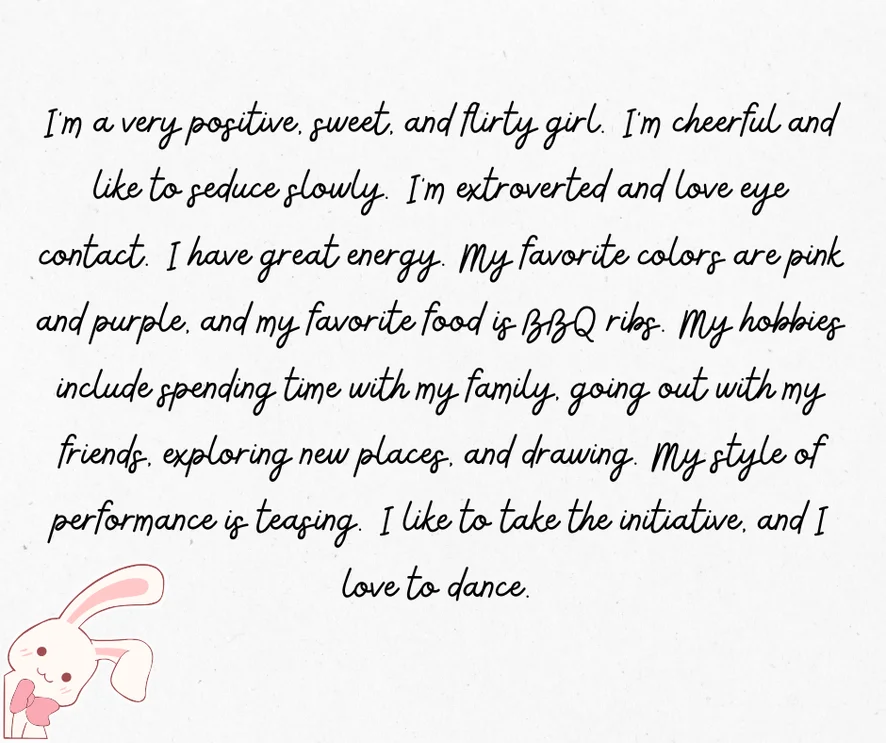 I'm a very positive, sweet, and flirty girl. I'm cheerful and
like to seduce slowly. I'm extroverted and love eye
contact. I have great energy. My favorite colors are pink
and purple, and my favorite food is BBQ ribs. My hobbies
include spending time with my family, going out with my
friends, exploring new places, and drawing. My style of
performance is teasing. I like to take the initiative, and I
love to dance.